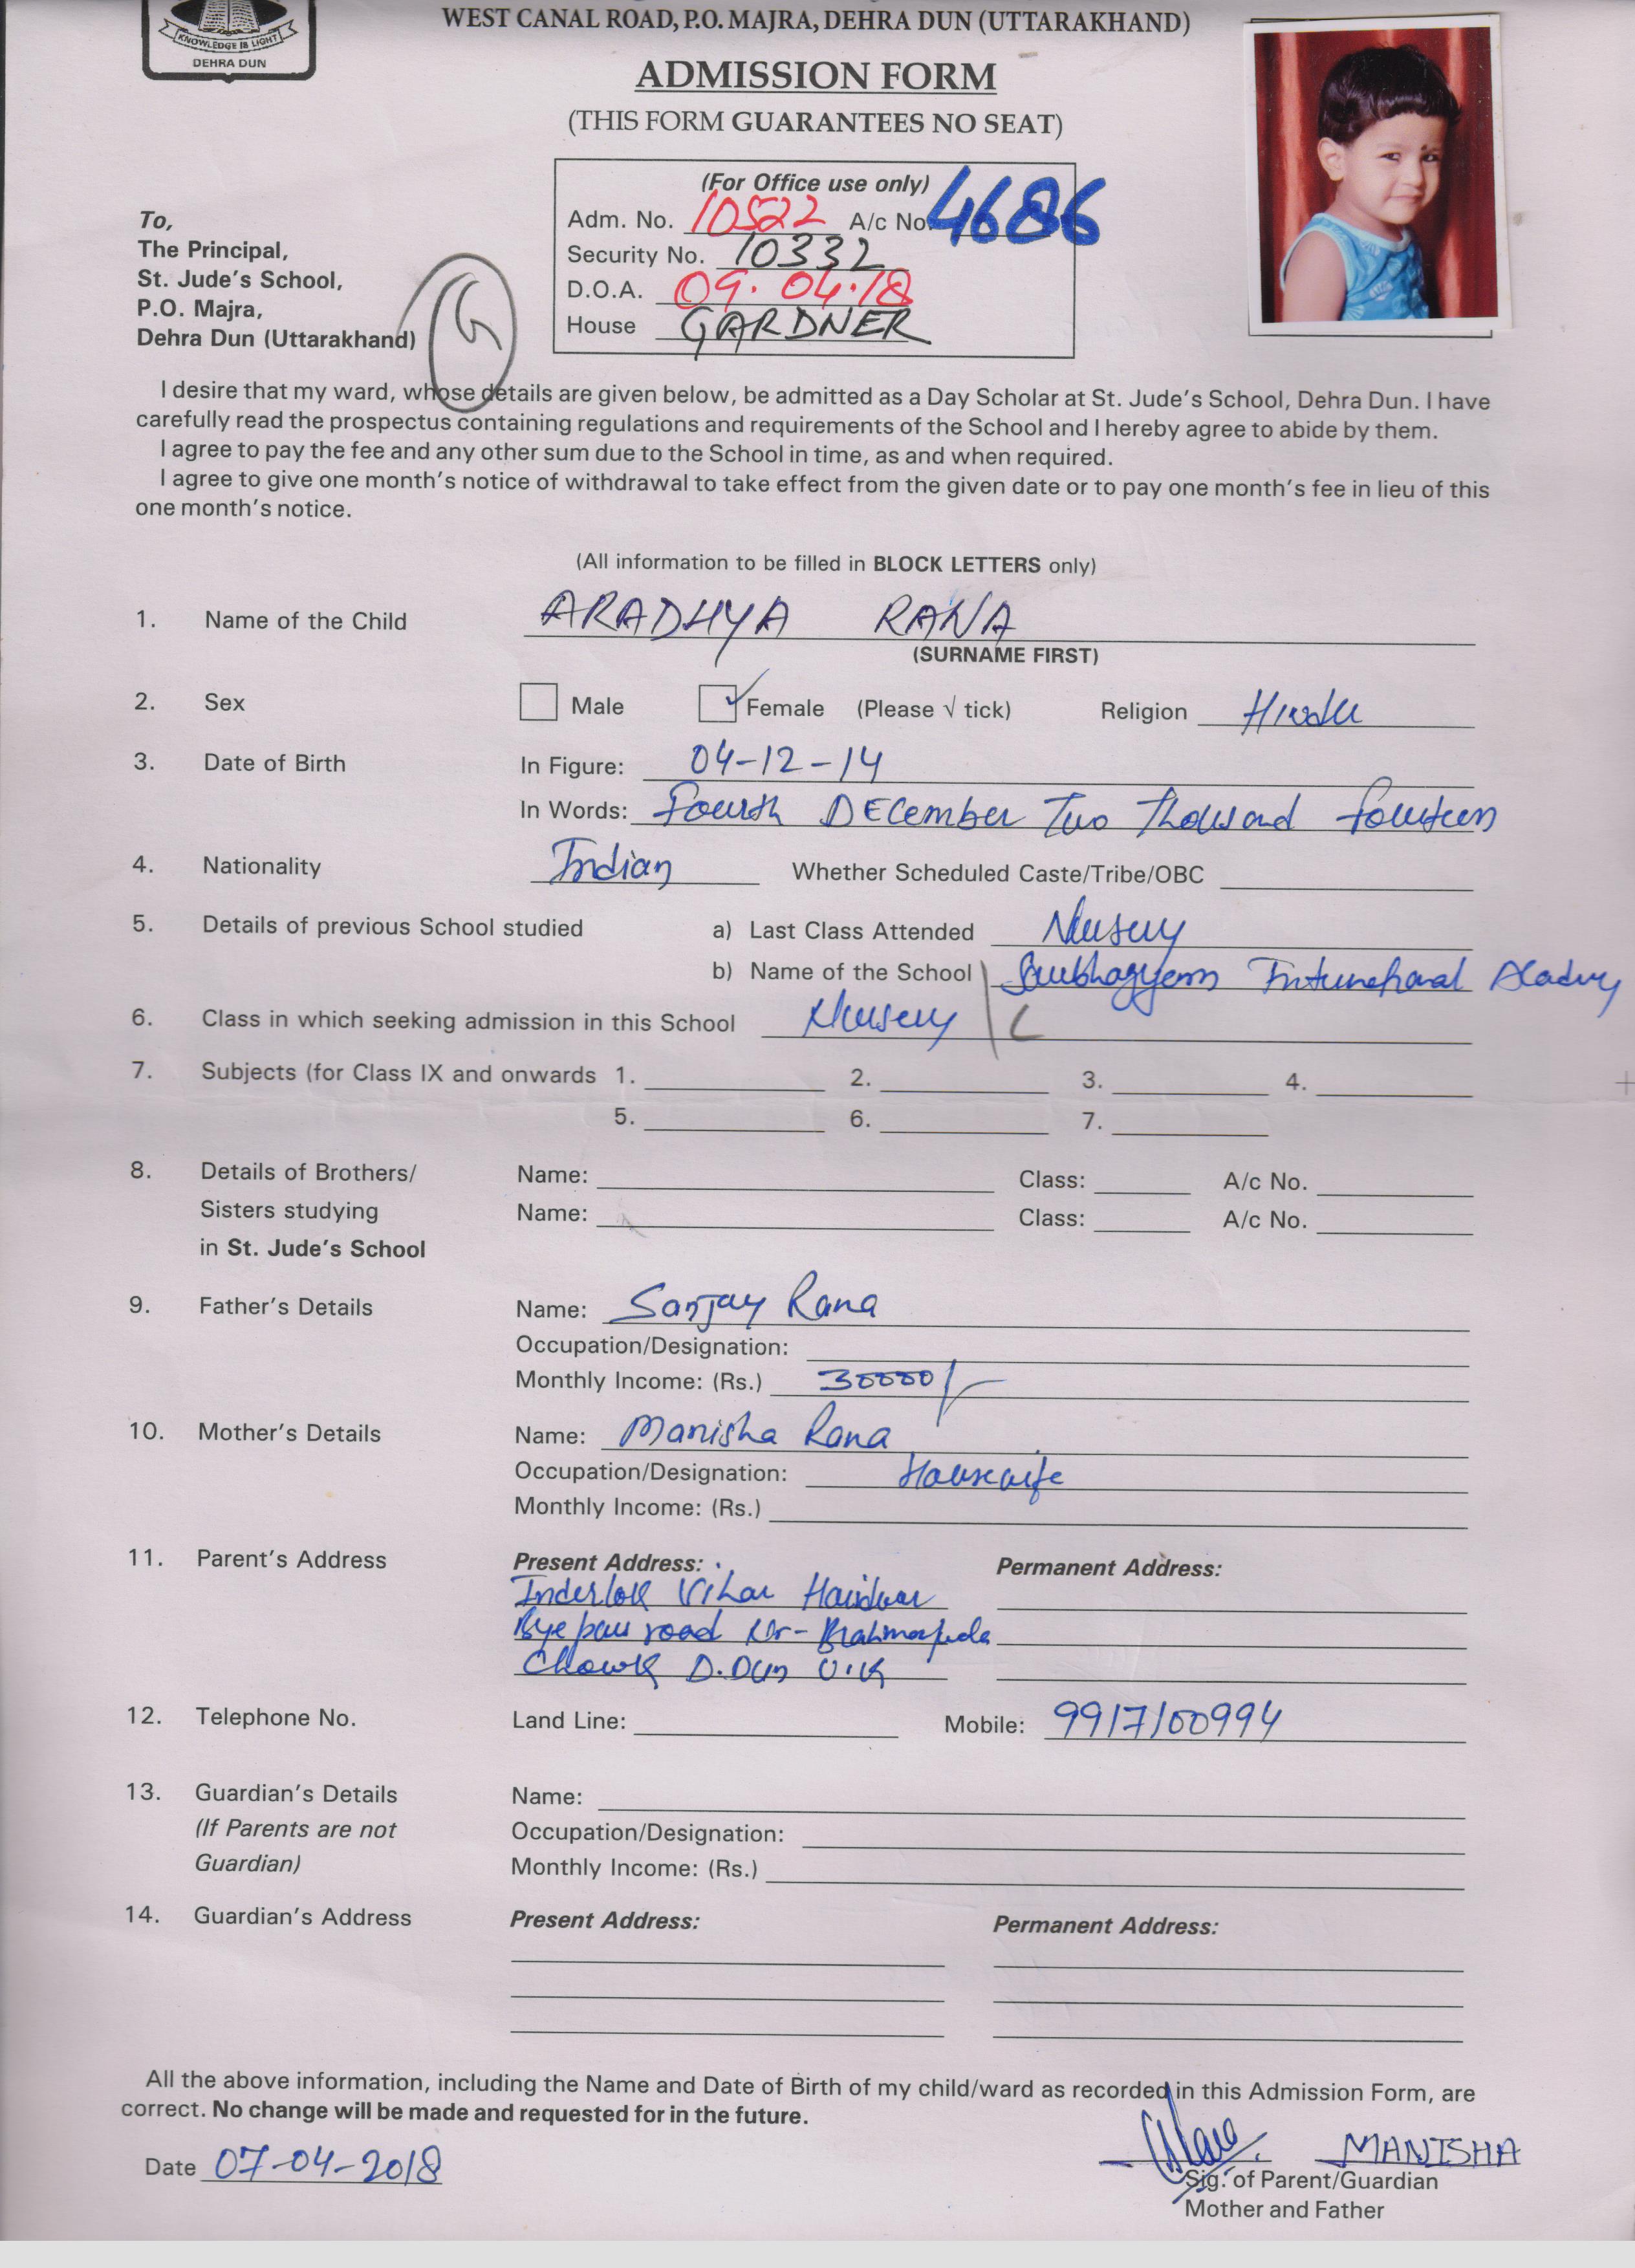 WEST CANAL ROAD, P.O. MAJRA, DEHRA DUN (UTTARAKHAND)
KNOWLEDGE IS LIGHT
DEHRA DUN
ADMISSION FORM
(THIS FORM GUARANTEES NO SEAT)
(For Office use only)
Adm. No. 10522 A/c No. 4686
Security No. 10332
D.O.A. 09.04.18
House GARDNER
To,
The Principal,
St. Jude's School,
P.O. Majra,
Dehra Dun (Uttarakhand)
G
I desire that my ward, whose details are given below, be admitted as a Day Scholar at St. Jude's School, Dehra Dun. I have
carefully read the prospectus containing regulations and requirements of the School and I hereby agree to abide by them.
I agree to pay the fee and any other sum due to the School in time, as and when required.
I agree to give one month's notice of withdrawal to take effect from the given date or to pay one month's fee in lieu of this
one month's notice.
(All information to be filled in BLOCK LETTERS only)
1. Name of the Child ARADHYA RANA
(SURNAME FIRST)
2. Sex Male Female (Please √ tick) Religion Hindu
3. Date of Birth In Figure: 04-12-14
In Words: Fourth DECember Two Thousand fourteen
4. Nationality Indian Whether Scheduled Caste/Tribe/OBC
5. Details of previous School studied a) Last Class Attended Nursery
b) Name of the School International
6. Class in which seeking admission in this School Nursery | C
7. Subjects (for Class IX and onwards 1. 2. 3. 4.
5. 6. 7.
8. Details of Brothers/ Name: Class: A/c No.
Sisters studying Name: Class: A/c No.
in St. Jude's School
9. Father's Details Name: Sanjay Rana
Occupation/Designation:
Monthly Income: (Rs.) 30000/-
10. Mother's Details Name: Manisha Rana
Occupation/Designation: Housewife
Monthly Income: (Rs.)
11. Parent's Address Present Address: Permanent Address:
Inderlok Vihar Haridwar
Bye pass road Nr-
Chowk D.Dun U.K
12. Telephone No. Land Line: Mobile: 9917100994
13. Guardian's Details Name:
(If Parents are not Occupation/Designation:
Guardian) Monthly Income: (Rs.)
14. Guardian's Address Present Address: Permanent Address:
All the above information, including the Name and Date of Birth of my child/ward as recorded in this Admission Form, are
correct. No change will be made and requested for in the future.
Date 07-04-2018 MANISHA
Sig. of Parent/Guardian
Mother and Father